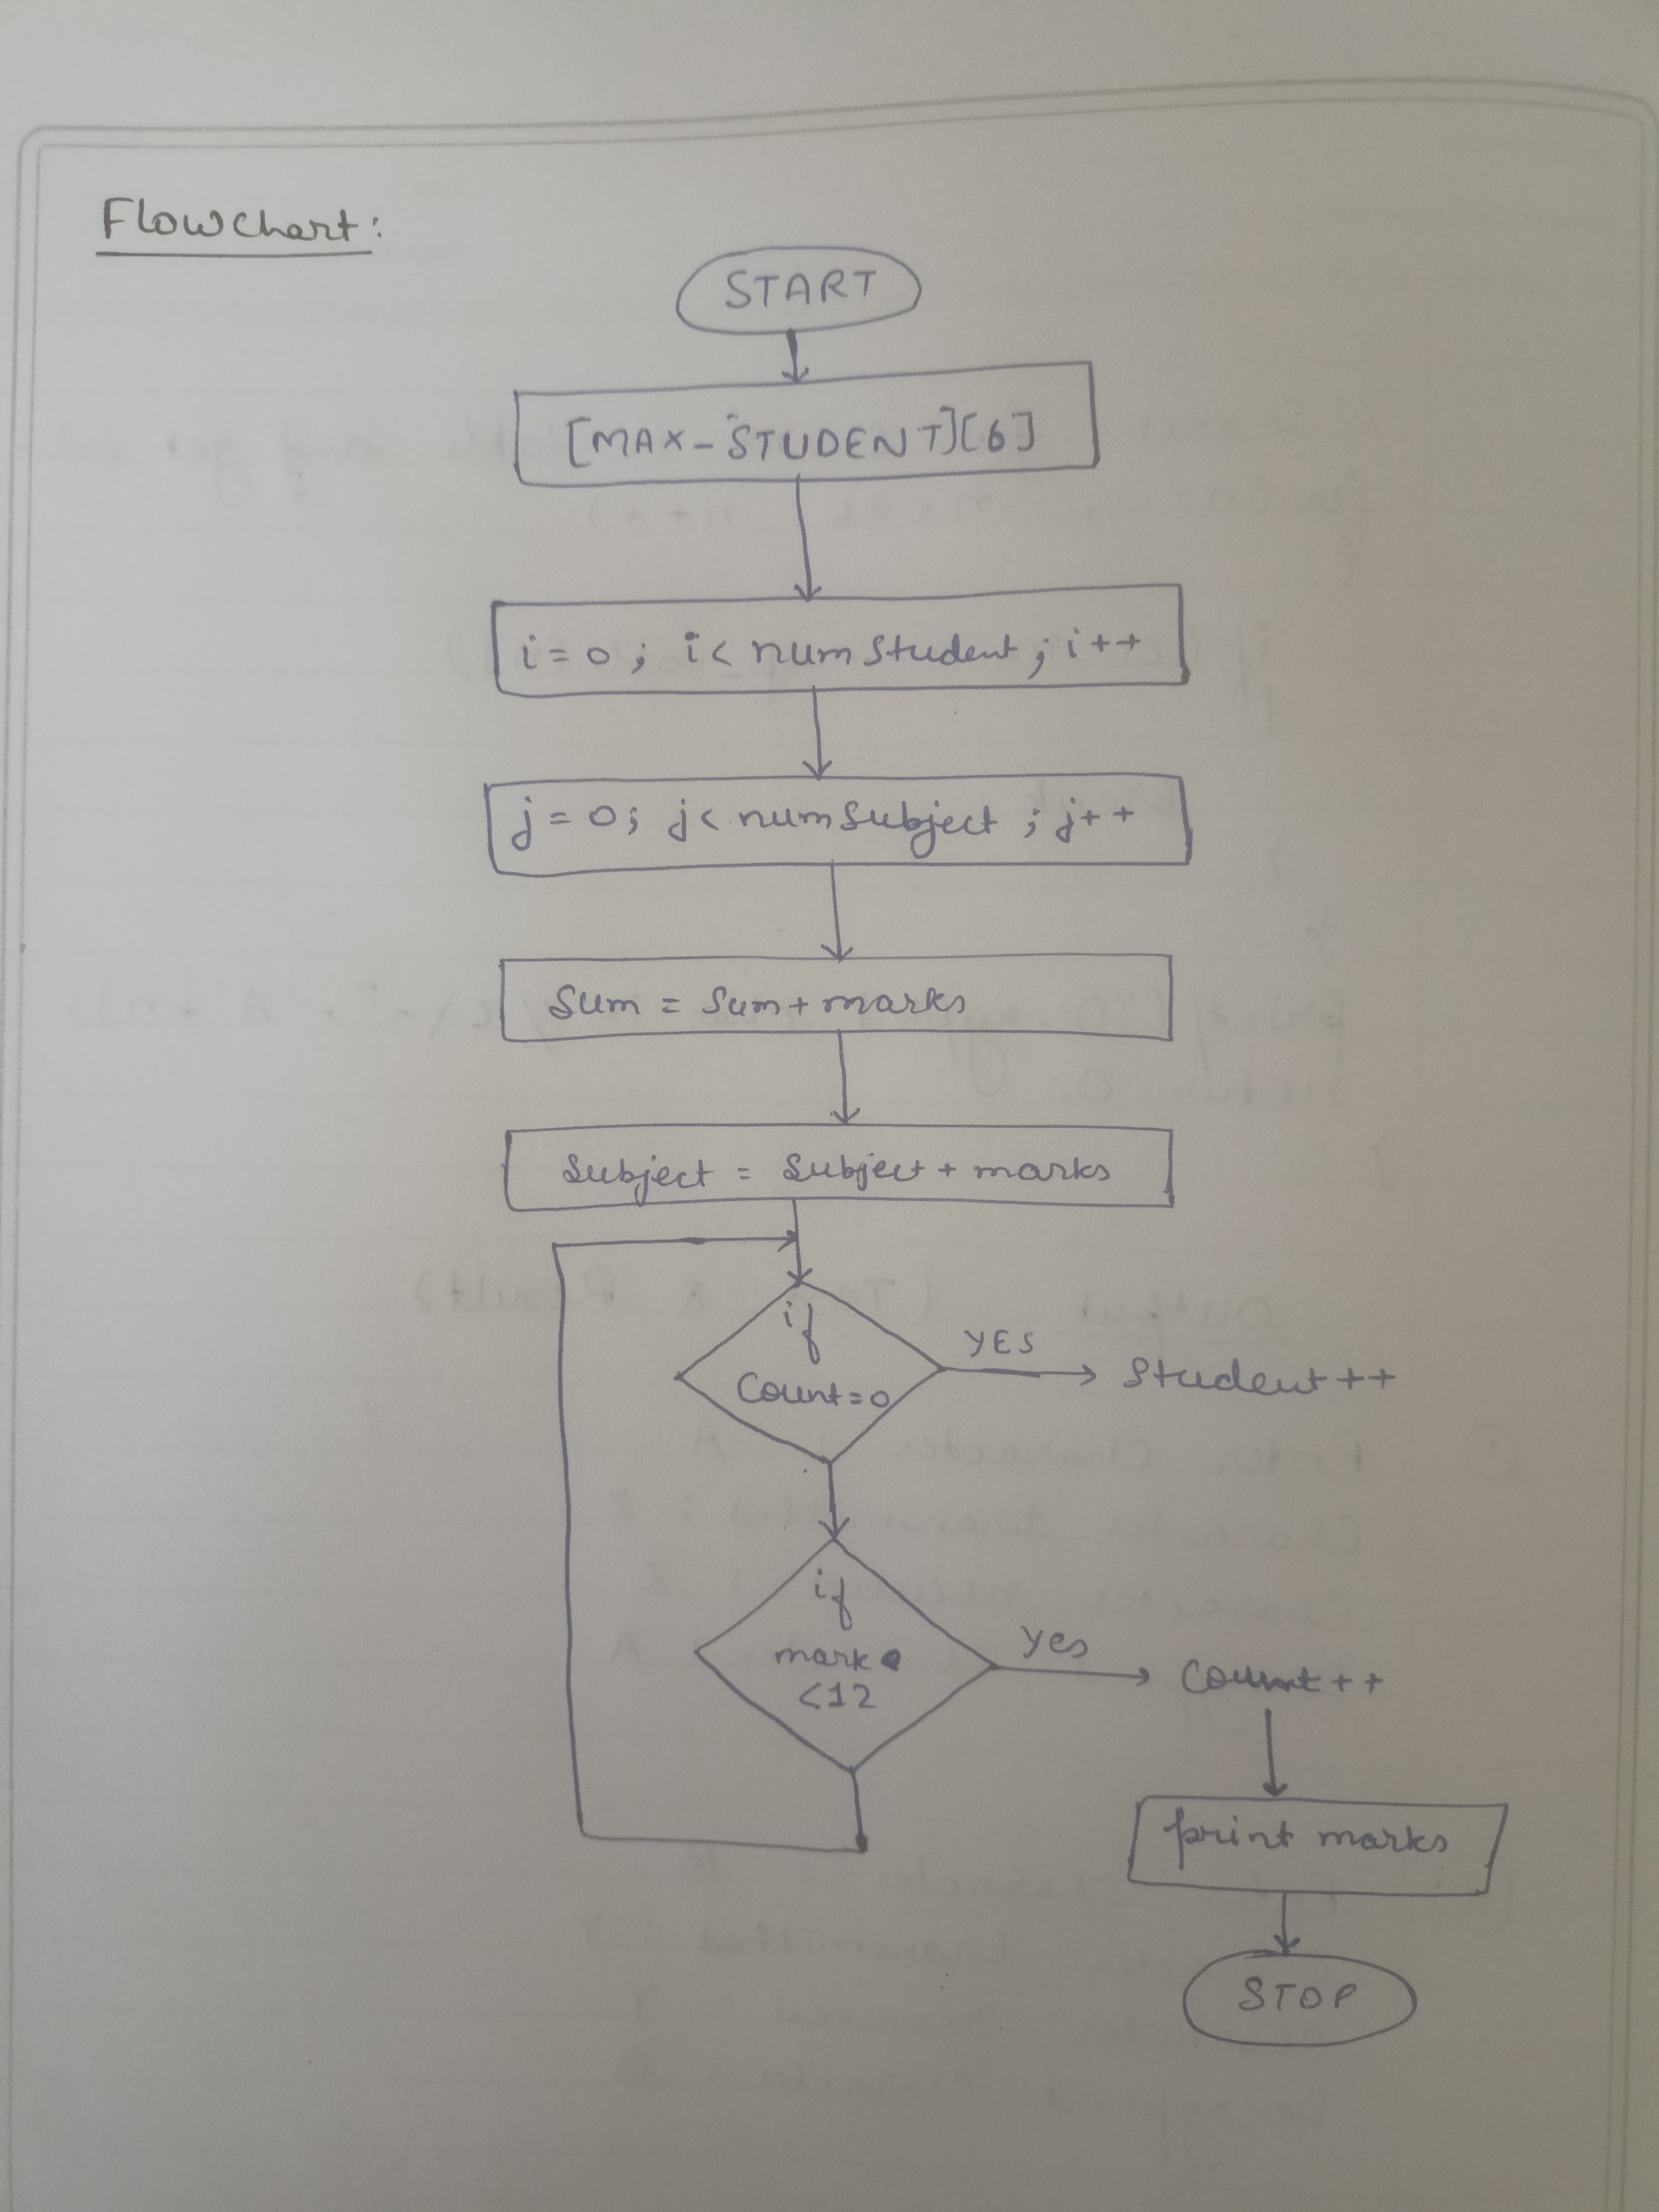 Flowchart:
START
[MAX-STUDENT][6]
i=0; i< numStudent; i++
j=0; j< numSubject; j++
Sum = Sum+marks
Subject = Subject + marks
if
Count=0
YES
Student++
if
mark
<12
Yes
Count++
print marks
STOP